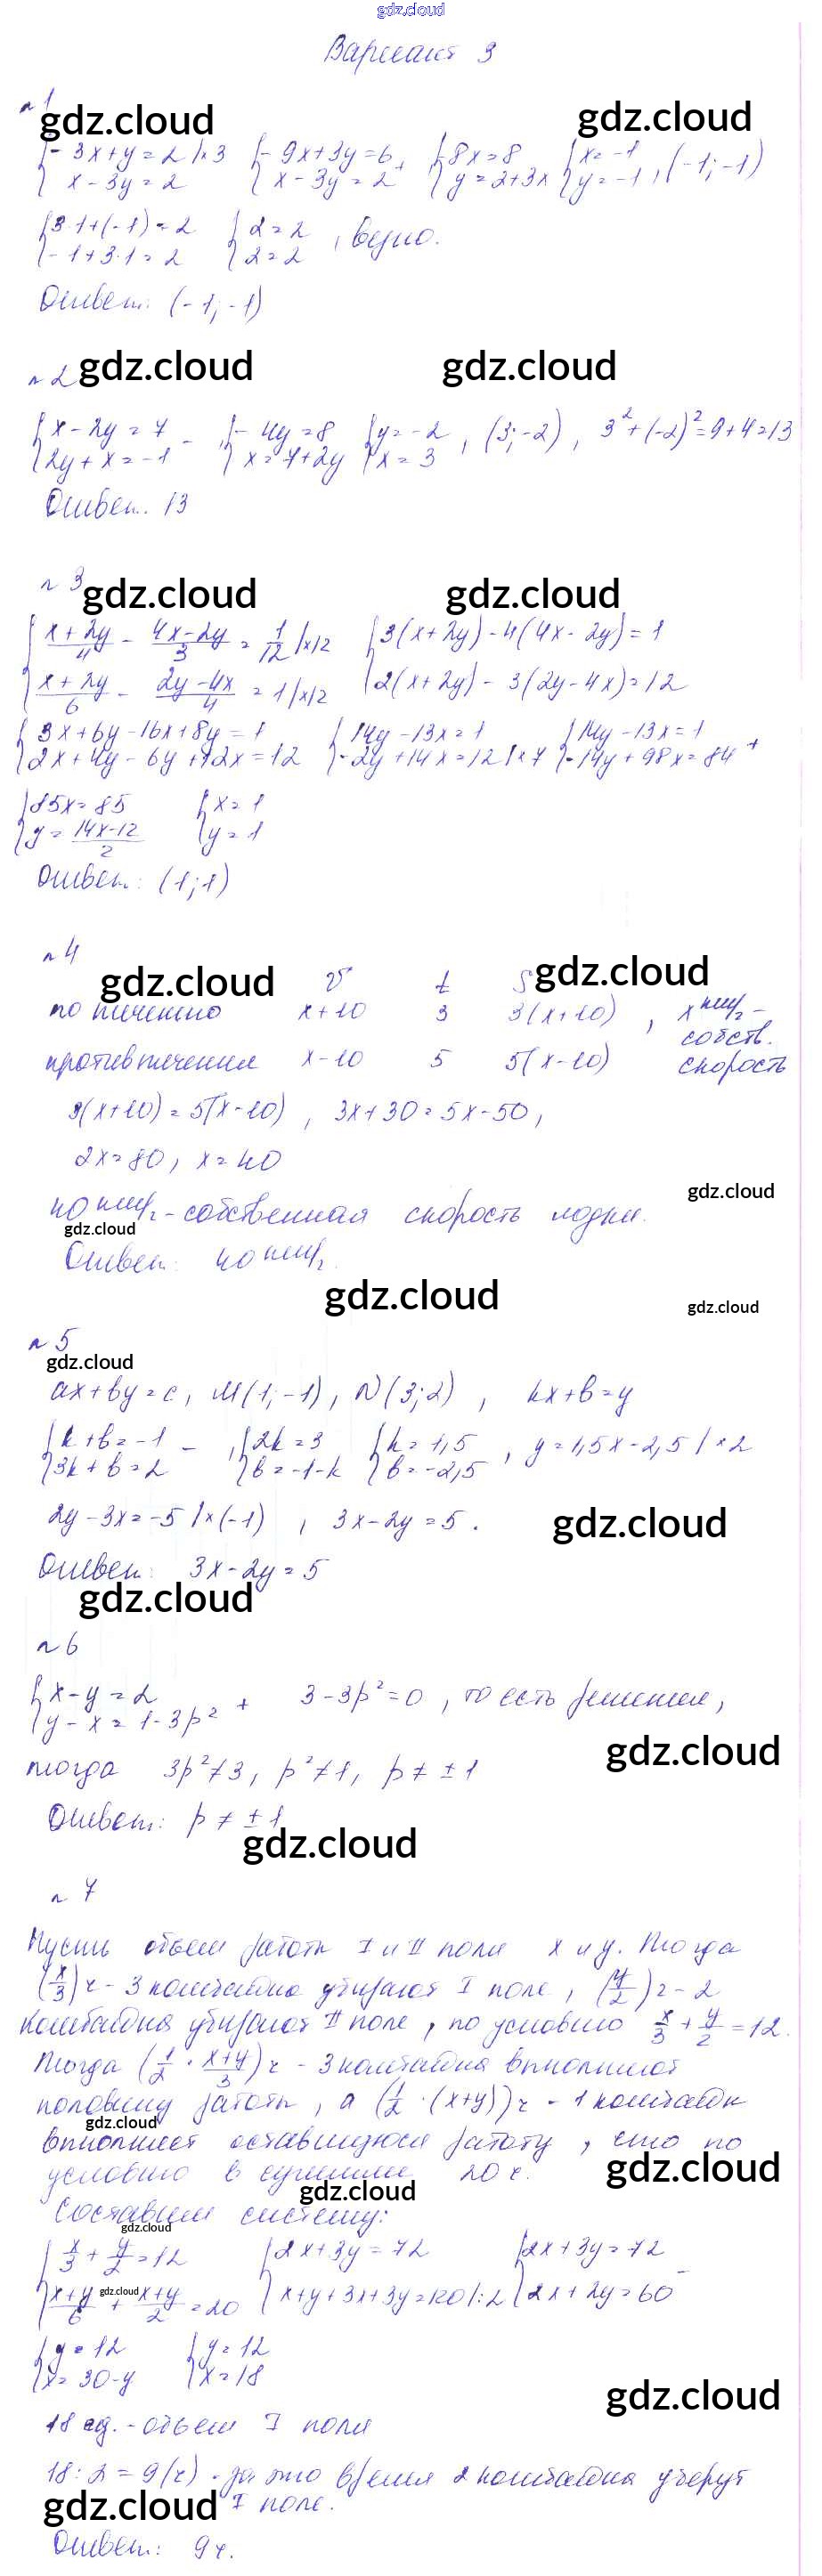 gdz.cloud
Вариант 3
n 1
gdz.cloud gdz.cloud
{-3x+y=2 |×3 {-9x+3y=6 + {-8x=8 {x=-1
{x-3y=2 {x-3y=2 {y=2+3x {y=-1 , (-1;-1)
{3·1+(-1)=2 {2=2
{-1+3·1=2 {2=2 , верно.
Ответ: (-1;-1)
n 2 gdz.cloud gdz.cloud
{x-2y=7 - {-4y=8 {y=-2
{2y+x=-1 , {x=7+2y {x=3 , (3;-2), 3²+(-2)²=9+4=13
Ответ. 13
n 3 gdz.cloud gdz.cloud
{(x+2y)/4 - (4x-2y)/3 = 1/12 |×12 {3(x+2y)-4(4x-2y)=1
{(x+2y)/6 - (2y-4x)/4 = 1 |×12 {2(x+2y)-3(2y-4x)=12
{3x+6y-16x+8y=1 {14y-13x=1 {14y-13x=1
{2x+4y-6y+12x=12 {-2y+14x=12 |×7 {-14y+98x=84 +
{85x=85 {x=1
{y=(14x-12)/2 {y=1
Ответ: (1;1)
n 4
gdz.cloud v t S gdz.cloud
по течению x+10 3 3(x+10) , x км/ч -
собств.
против течения x-10 5 5(x-10) скорость
3(x+10)=5(x-10) , 3x+30=5x-50,
2x=80, x=40
gdz.cloud
40 км/ч - собственная скорость лодки.
gdz.cloud
Ответ: 40 км/ч.
gdz.cloud gdz.cloud
n 5
gdz.cloud
ax+by=c, M(1;-1), N(3;2) , kx+b=y
{k+b=-1 - {2k=3 {k=1,5
{3k+b=2 , {b=-1-k {b=-2,5 , y=1,5x-2,5 |×2
2y-3x=-5 |×(-1) , 3x-2y=5.
gdz.cloud
Ответ: 3x-2y=5
gdz.cloud
n 6
{x-y=2
{y-x=1-3p² + 3-3p²=0, то есть решения,
gdz.cloud
тогда 3p²≠3, p²≠1, p≠±1
Ответ: p≠±1
gdz.cloud
n 7
Пусть объем работы I и II поля x и y. Тогда
(x/3) ч - 3 комбайна убирают I поле, (y/2) ч - 2
комбайна убирают II поле, по условию x/3 + y/2 = 12.
Тогда (1/2 · (x+y)/3) ч - 3 комбайна выполняют
половину работы, а (1/2 · (x+y)) ч - 1 комбайн
gdz.cloud
выполняет оставшуюся работу, что по
условию в сумме 20 ч. gdz.cloud
gdz.cloud
Составим систему:
gdz.cloud
{x/3 + y/2 = 12 {2x+3y=72 {2x+3y=72
{(x+y)/6 + (x+y)/2 = 20 {x+y+3x+3y=120 |:2 {2x+2y=60 -
gdz.cloud
{y=12 {y=12
{x=30-y {x=18
gdz.cloud
18 ед. - объем I поля
18:2=9(ч) - за это время 2 комбайна уберут
gdz.cloud I поле.
Ответ: 9 ч.